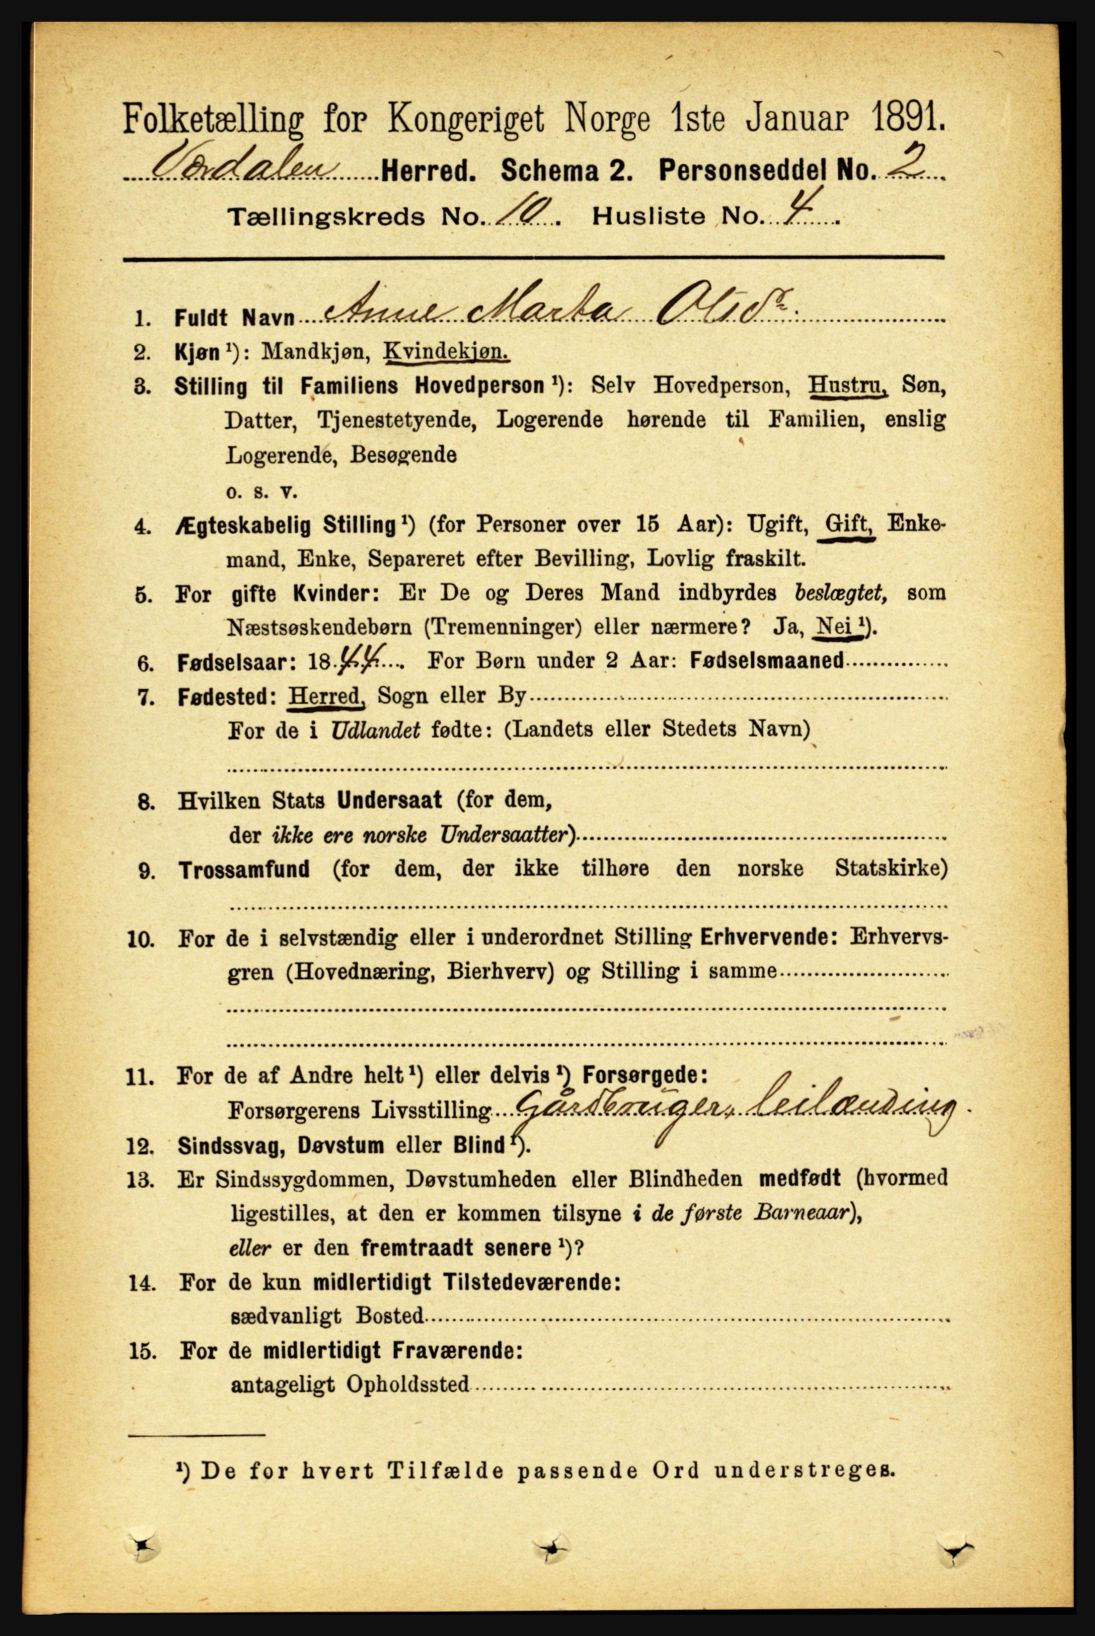 Folketælling for Kongeriget Norge 1ste Januar 1891.
Værdalen Herred. Schema 2. Personseddel No. 2
Tællingskreds No. 10. Husliste No. 4.
1. Fuldt Navn Anne Marta Olsdr.
2. Kjøn ¹): Mandkjøn, Kvindekjøn.
3. Stilling til Familiens Hovedperson ¹): Selv Hovedperson, Hustru, Søn,
Datter, Tjenestetyende, Logerende hørende til Familien, enslig
Logerende, Besøgende
o. s. v.
4. Ægteskabelig Stilling ¹) (for Personer over 15 Aar): Ugift, Gift, Enke-
mand, Enke, Separeret efter Bevilling, Lovlig fraskilt.
5. For gifte Kvinder: Er De og Deres Mand indbyrdes beslægtet, som
Næstsøskendebørn (Tremenninger) eller nærmere? Ja, Nei ¹).
6. Fødselsaar: 1844. For Børn under 2 Aar: Fødselsmaaned
7. Fødested: Herred, Sogn eller By
For de i Udlandet fødte: (Landets eller Stedets Navn)
8. Hvilken Stats Undersaat (for dem,
der ikke ere norske Undersaatter)
9. Trossamfund (for dem, der ikke tilhøre den norske Statskirke)
10. For de i selvstændig eller i underordnet Stilling Erhvervende: Erhvervs-
gren (Hovednæring, Bierhverv) og Stilling i samme
11. For de af Andre helt ¹) eller delvis ¹) Forsørgede:
Forsørgerens Livsstilling Gårdbruger, leilænding.
12. Sindssvag, Døvstum eller Blind ¹).
13. Er Sindssygdommen, Døvstumheden eller Blindheden medfødt (hvormed
ligestilles, at den er kommen tilsyne i de første Barneaar),
eller er den fremtraadt senere ¹)?
14. For de kun midlertidigt Tilstedeværende:
sædvanligt Bosted
15. For de midlertidigt Fraværende:
antageligt Opholdssted
¹) De for hvert Tilfælde passende Ord understreges.